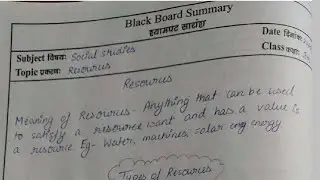 Black Board Summary
श्यामपट सारांश
Date दिनांक:
Subject विषय: Social studies
Class कक्षा:
Topic प्रकरण: Resources
Resources
Meaning of Resources- Anything that can be used
to satisfy a resource want and has a value is
a resource. Eg- Water, machines, solar energy.
Types of Resources